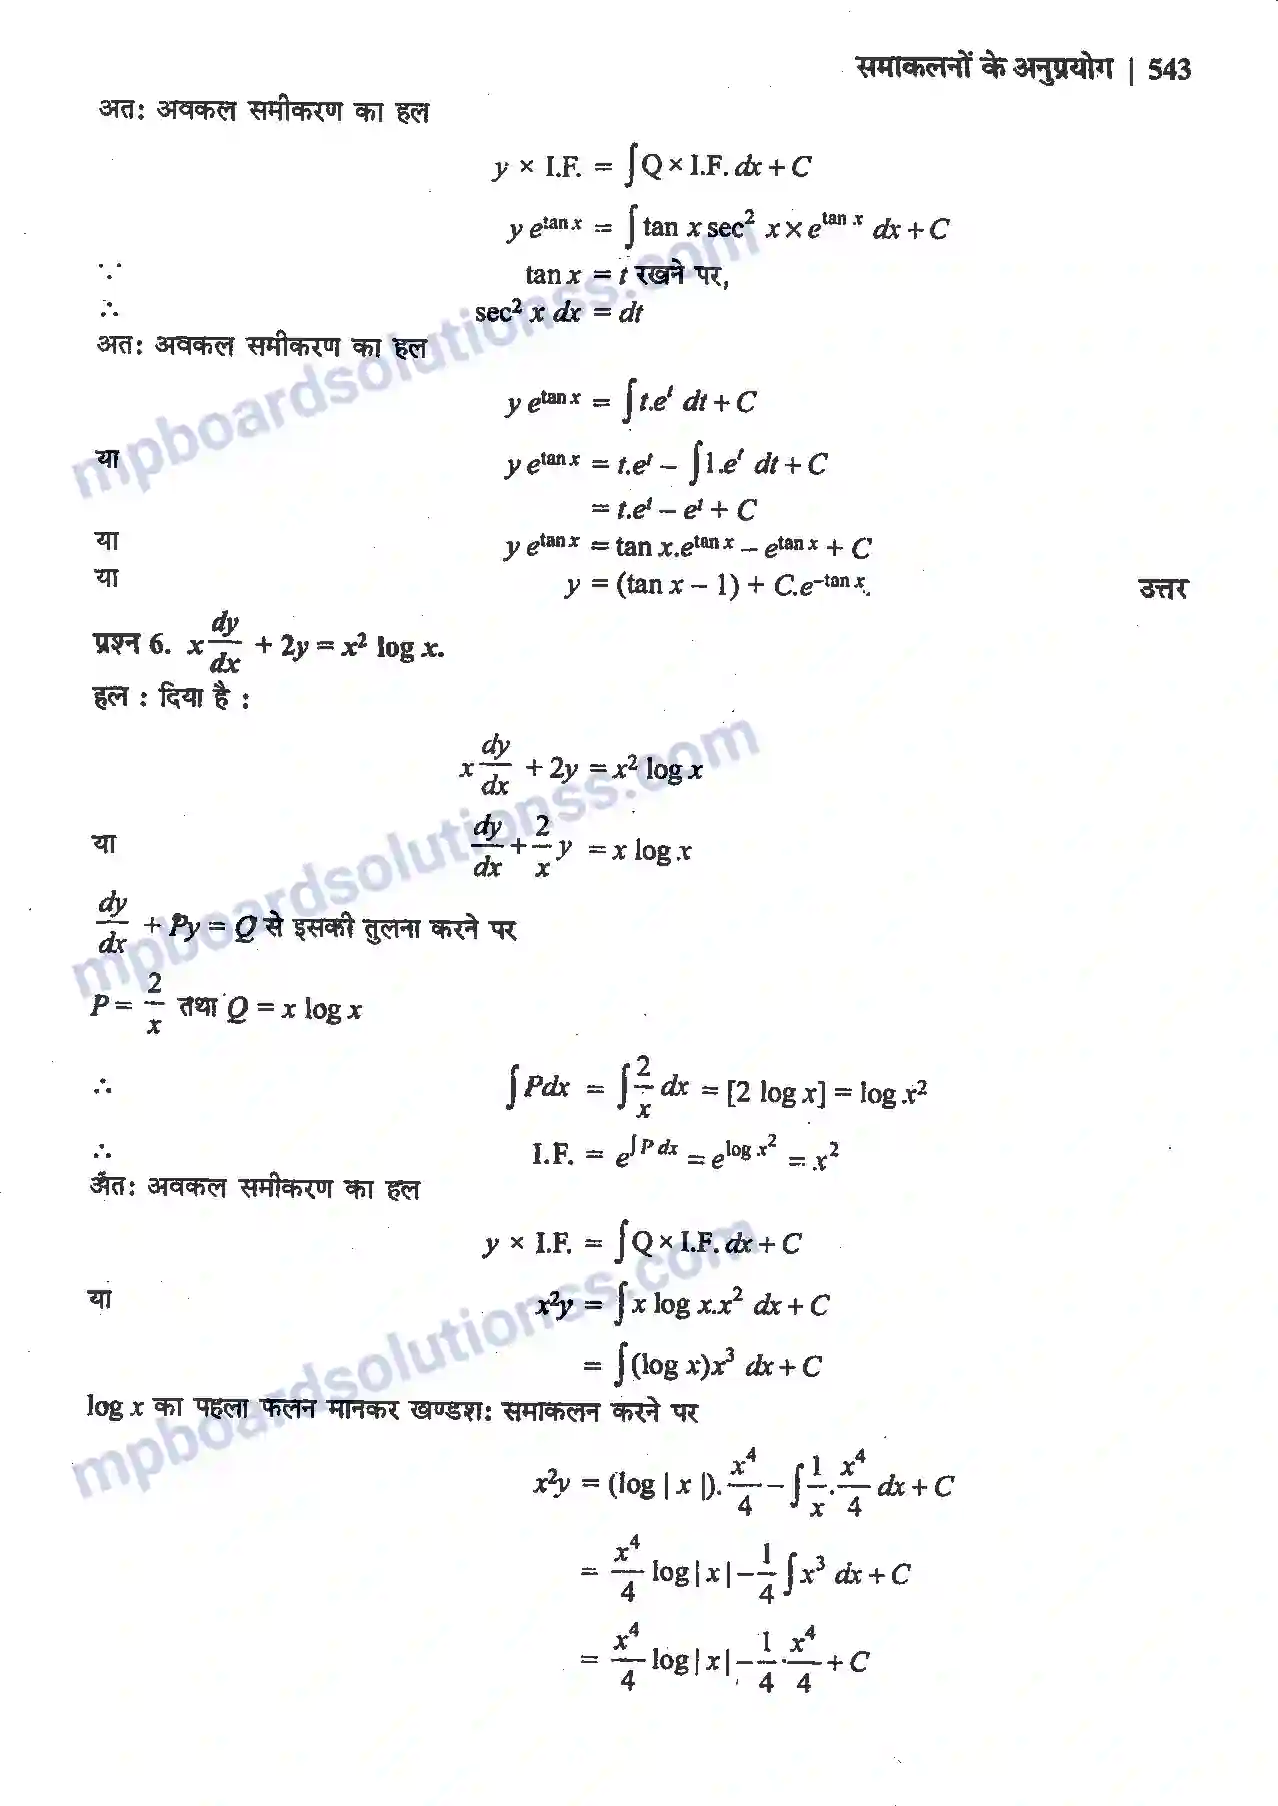 समाकलनों के अनुप्रयोग | 543
अत: अवकल समीकरण का हल
y × I.F. = ∫Q × I.F. dx + C
y e^{tan x} = ∫tan x sec² x × e^{tan x} dx + C
∵ tan x = t रखने पर,
∴ sec² x dx = dt
अत: अवकल समीकरण का हल
y e^{tan x} = ∫t.e^t dt + C
या y e^{tan x} = t.e^t – ∫1.e^t dt + C
= t.e^t – e^t + C
या y e^{tan x} = tan x.e^{tan x} – e^{tan x} + C
या y = (tan x – 1) + C.e^{–tan x}. उत्तर
प्रश्न 6. x dy/dx + 2y = x² log x.
हल : दिया है :
x dy/dx + 2y = x² log x
या dy/dx + 2/x y = x log x
dy/dx + Py = Q से इसकी तुलना करने पर
P = 2/x तथा Q = x log x
∴ ∫Pdx = ∫2/x dx = [2 log x] = log x²
∴ I.F. = e^{∫P dx} = e^{log x²} = x²
अत: अवकल समीकरण का हल
y × I.F. = ∫Q × I.F. dx + C
या x²y = ∫x log x.x² dx + C
= ∫(log x)x³ dx + C
log x का पहला फलन मानकर खण्डश: समाकलन करने पर
x²y = (log | x |). x⁴/4 – ∫1/x . x⁴/4 dx + C
= x⁴/4 log | x | – 1/4 ∫x³ dx + C
= x⁴/4 log | x | – 1/4 . x⁴/4 + C
mpboardsolutionss.com
mpboardsolutionss.com
mpboardsolutionss.com